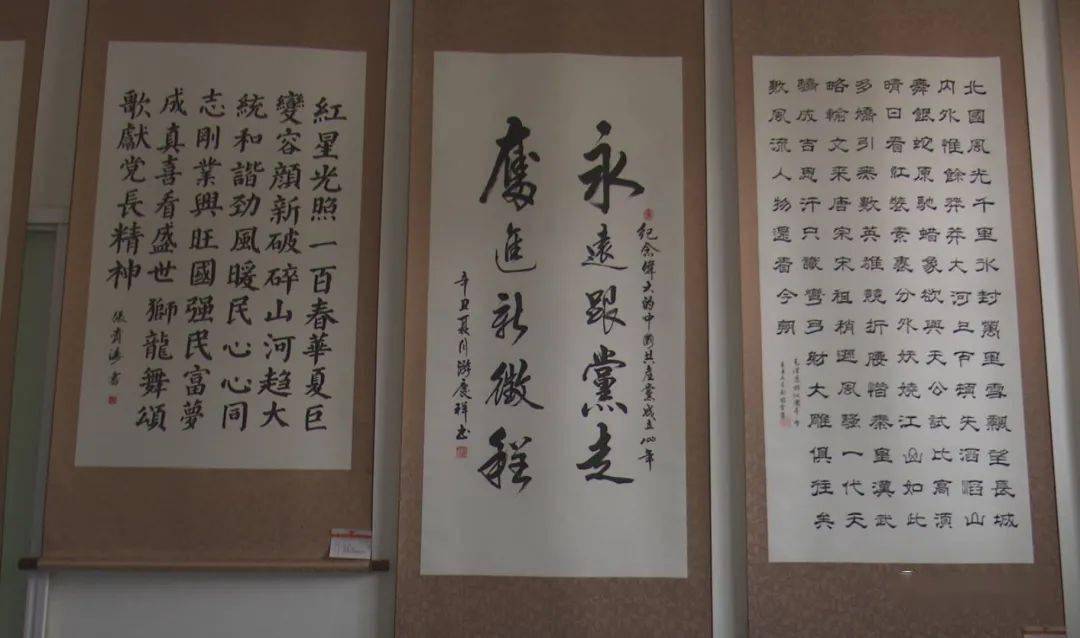 北國風光千里氷封萬里雪飄望長城
內外惟餘莽莽大河上下頓失滔滔山
舞銀蛇原馳蠟象欲與天公試比高須
晴日看紅裝素裹分外妖嬈江山如此
多嬌引無數英雄競折腰惜秦皇漢武
略輸文采唐宗宋祖稍遜風騷一代天
驕成吉思汗只識彎弓射大雕俱往矣
數風流人物還看今朝
紀念偉大的中國共產黨成立100年
永遠跟黨走
奮進新徵程
辛丑夏月
紅星光照一百春華夏巨
變容顏新破碎山河趋大
統和諧劲風暖民心心同
志剛業興旺國强民富夢
成真喜看盛世獅龍舞頌
歌獻党長精神